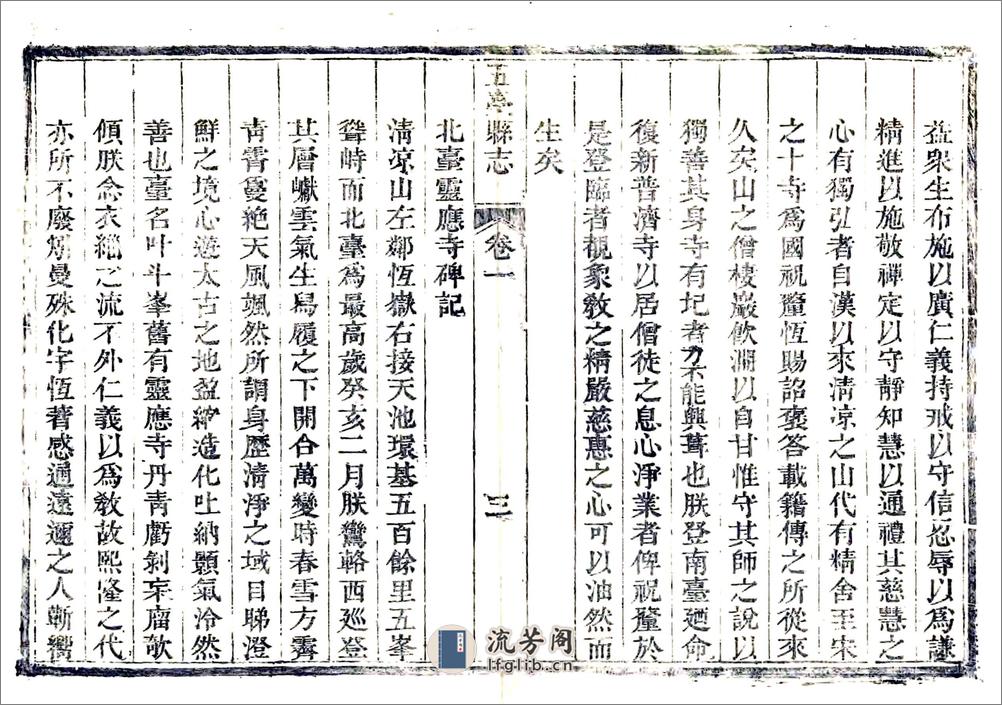 益衆生布施以廣仁義持戒以守信忍辱以爲謙
精進以施敬禪定以守靜知慧以通禮其慈慧之
心有獨弘者自漢以來淸凉之山代有精舍至宋
之十寺爲國祝釐恆賜詔褒答載籍傳之所從來
久矣山之僧棲巖飲澗以自甘惟守其師之說以
獨善其身寺有圮者力不能興葺也朕登南臺廼命
復新普濟寺以居僧徒之息心淨業者俾祝釐於
是登臨者覩象敎之精嚴慈惠之心可以油然而
生矣
五臺縣志
卷一
三
北臺靈應寺碑記
淸凉山左鄰恆嶽右接天池環基五百餘里五峯
聳峙而北臺爲最高歲癸亥二月朕鸞輅西巡登
其層巘雲氣生舄履之下開合萬變時春雪方霽
靑霄敻絕天風颯然所謂身歷淸淨之域目睇澄
鮮之境心遊太古之地盈縮造化吐納顥氣泠然
善也臺名叶斗峯舊有靈應寺丹靑虧剝杗廇欹
傾朕念衣緇之流不外仁義以爲敎故熙隆之代
亦所不廢矧曼殊化宇恆著感通遠邇之人蘄嚮
流芳阁
lfglib.cn